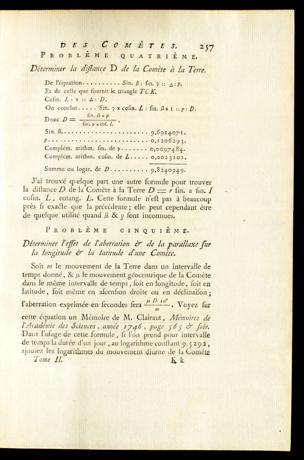 DES COMÈTES. 257
PROBLÊME QUATRIÉME.
Déterminer la distance D de la Comète à la Terre.
De l'équation.......... Sin. β : sin. γ :: Δ : ρ.
Et de celle que fournit le triangle TCK.
Cosin. L : 1 :: Δ : D.
On conclut..... Sin. γ × cosin. L : sin. β × 1 :: ρ : D.
Donc D = sin. β × ρ / sin. γ × cos. L.
Sin. β................ 9,6914071.
ρ.................... 0,1206293.
Complém. arithm. sin. de γ.......... 0,0097484.
Complém. arithm. cosin. de L..... 0,0023101.
Somme ou logar. de D.......... 9,8240949.
J'ai trouvé quelque part une autre formule pour trouver
la distance D de la Comète à la Terre D = r sin. u sin. I
cosin. L, cotang. L. Cette formule n'est pas à beaucoup
près si exacte que la précédente; elle peut cependant être
de quelque utilité quand β & ρ sont inconnues.
PROBLÊME CINQUIÉME.
Déterminer l'effet de l'aberration & de la parallaxe sur
la longitude & la latitude d'une Comète.
Soit m le mouvement de la Terre dans un intervalle de
temps donné, & μ le mouvement géocentrique de la Comète
dans le même intervalle de temps, soit en longitude, soit en
latitude, soit même en ascension droite ou en déclinaison;
l'aberration exprimée en secondes sera μ D 20" / m. Voyez sur
cette équation un Mémoire de M. Clairaut, Mémoires de
l'Académie des Sciences, année 1746, page 565 & suiv.
Dans l'usage de cette formule, si l'on prend pour intervalle
de temps la durée d'un jour, au logarithme constant 9,5292,
ajoutez les logarithmes du mouvement diurne de la Comète
Tome II. K k